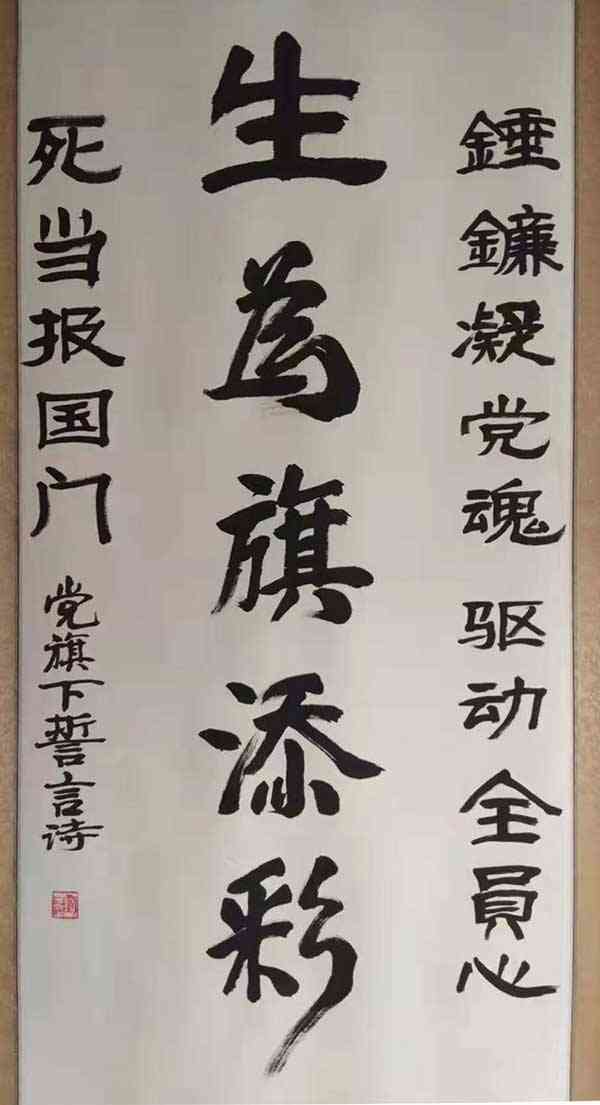 錘鐮凝党魂 驱动全員心
生为旗添彩
死当报国门 党旗下誓言诗